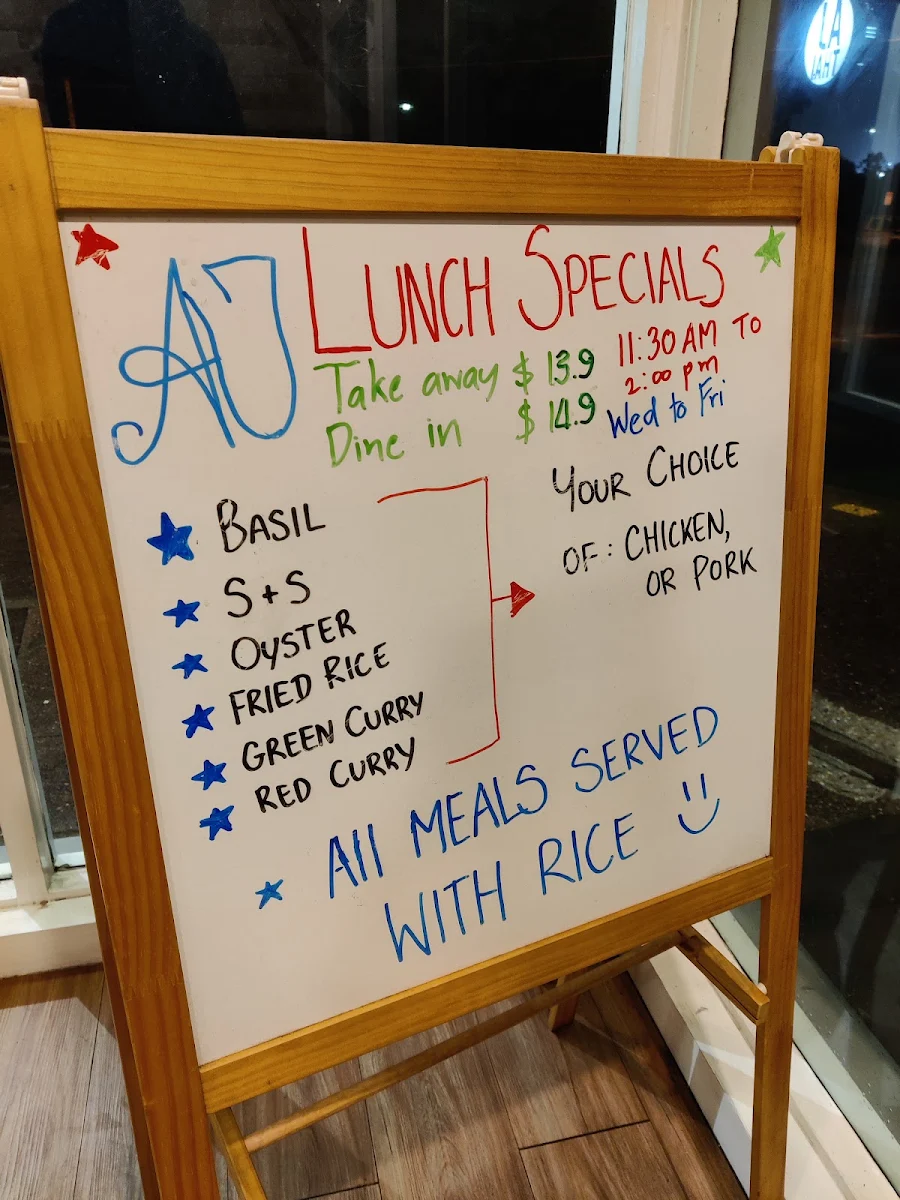 AJ LUNCH SPECIALS
Take away $ 13.9
Dine in $ 14.9
11:30 AM TO
2:00 pm
Wed to Fri
BASIL
S+S
OYSTER
FRIED RICE
GREEN CURRY
RED CURRY
YOUR CHOICE
OF: CHICKEN,
OR PORK
All MEALS SERVED
WITH RICE
AJ
THAI